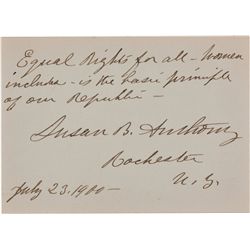 Equal Rights for all - Women
includes - is the basic principle
of our Republic -
Susan B. Anthony
Rochester
N.Y.
July 23. 1900 -